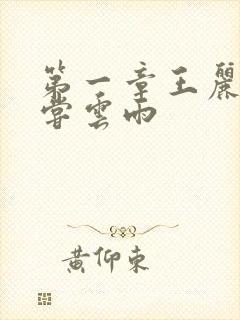 第一章王麗
嘗雲雨
黄仰東